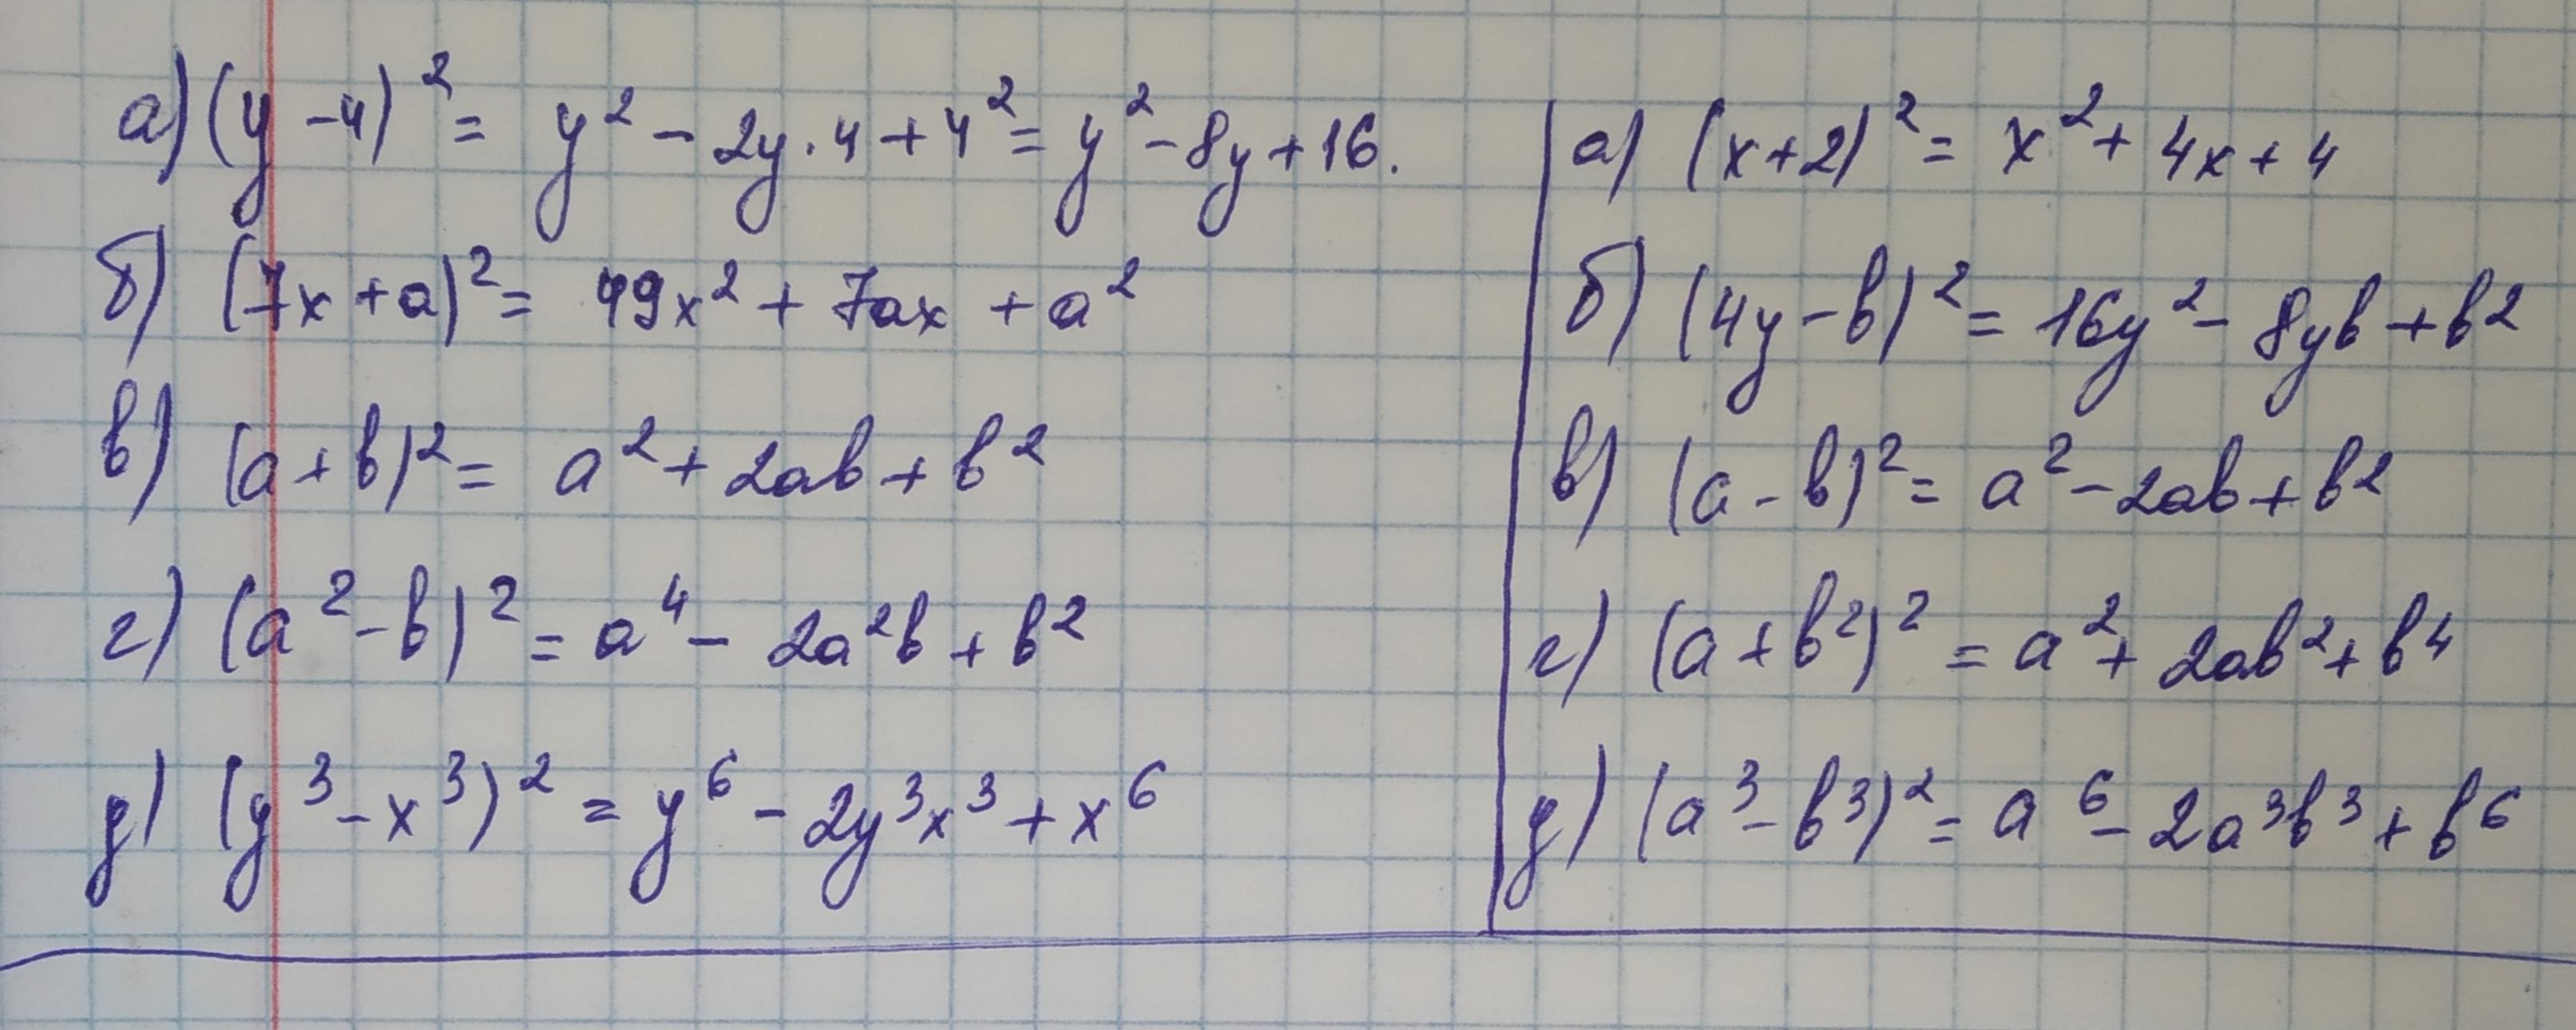 а) (y - 4)² = y² - 2y · 4 + 4² = y² - 8y + 16.
б) (7x + a)² = 49x² + 7ax + a²
в) (a + b)² = a² + 2ab + b²
г) (a² - b)² = a⁴ - 2a²b + b²
д) (y³ - x³)² = y⁶ - 2y³x³ + x⁶
а) (x + 2)² = x² + 4x + 4
б) (4y - b)² = 16y² - 8yb + b²
в) (a - b)² = a² - 2ab + b²
г) (a + b²)² = a² + 2ab² + b⁴
д) (a³ - b³)² = a⁶ - 2a³b³ + b⁶